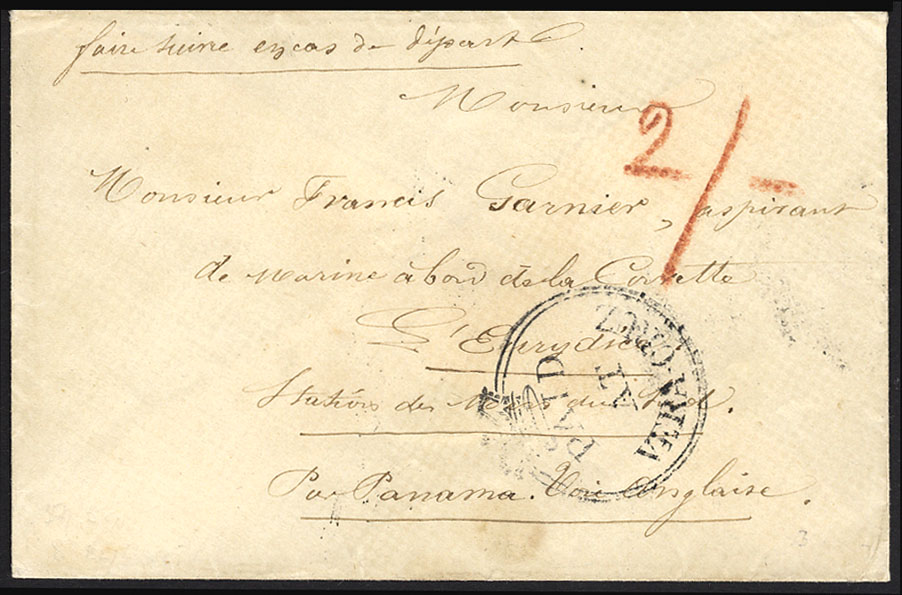 faire suivre en cas de départ.
Monsieur
2/-
Monsieur Francis Garnier, aspirant
de marine à bord de la Corvette
L'Eurydice
Station des Mers du Sud.
Par Panama. Voie Anglaise.
PAID
AT
VERA CRUZ
3